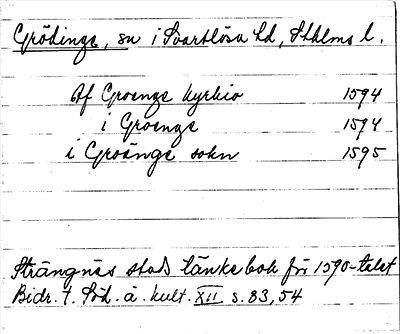 Grödinge, sn i Svartlösa hd, Sthlms l.
Af Groenge kyrkio 1594
i Groenge 1594
i Groänge sokn 1595
Strängnäs stads tänkebok för 1590-talet
Bidr. t. Söd. ä. kult. XII s. 83, 54